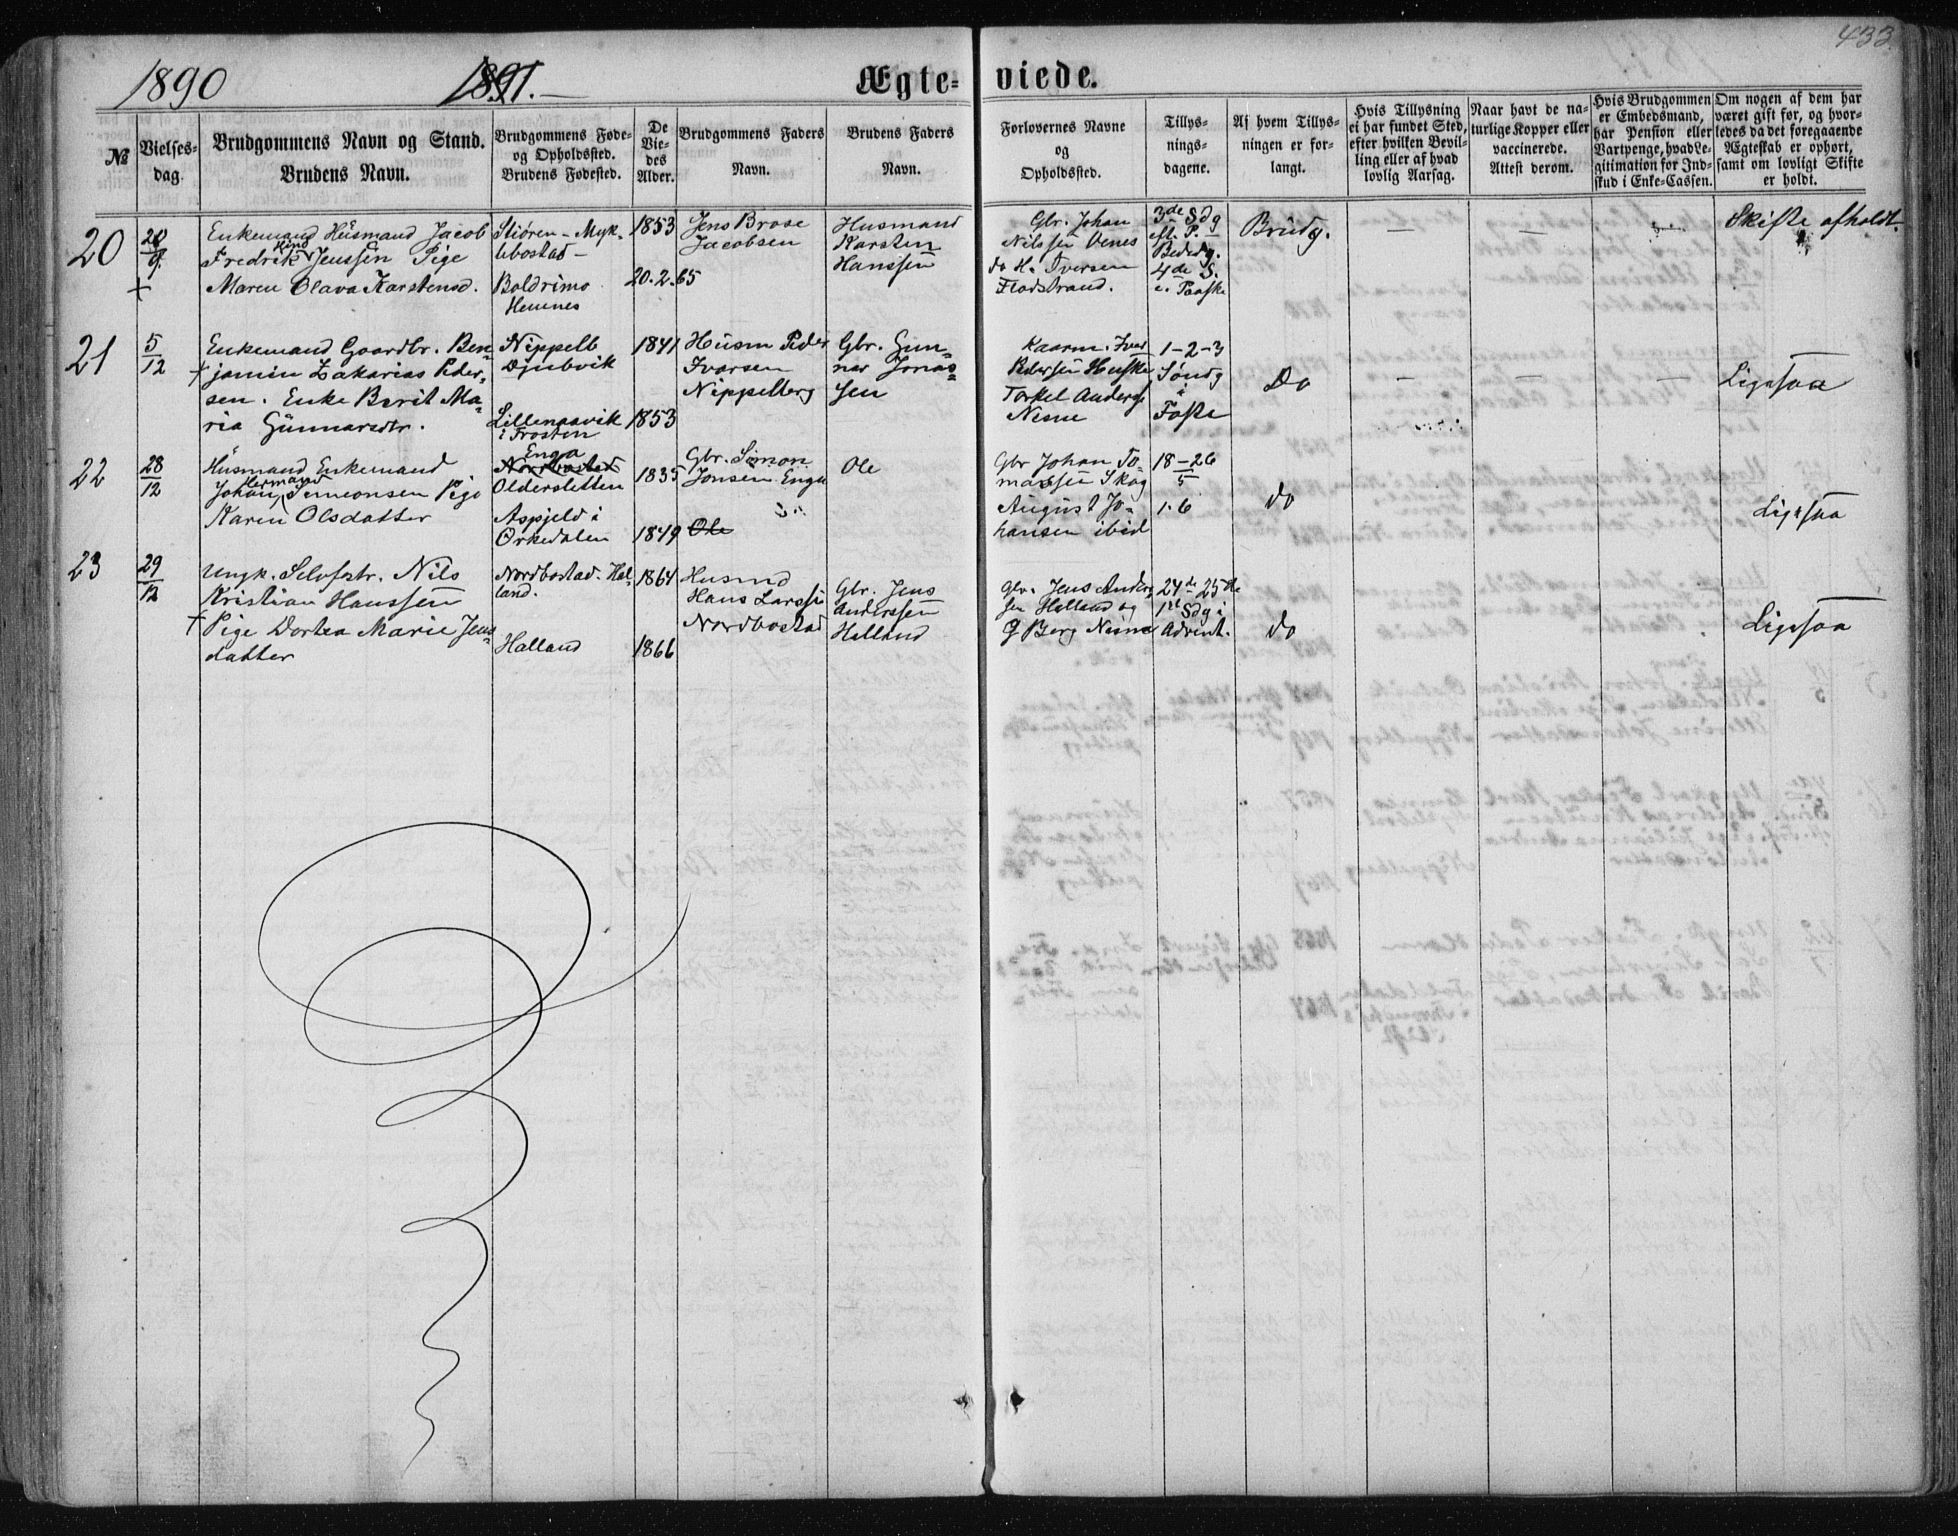 433.
1890 1891. — Ægteviede.
№
Vielsesdag.
Brudgommens Navn og Stand.
Brudens Navn.
Brudgommens Føde-
og Opholdssted.
Brudens Fødested.
De
Vie-
des
Alder.
Brudgommens Faders
Navn.
Brudens Faders
Navn.
Forlovernes Navne
og
Opholdssted.
Tillys-
nings-
dagene.
Af hvem Tillys-
ningen er for-
langt.
Hvis Tillysning
ei har fundet Sted,
efter hvilken Bevil-
ling eller af hvad
lovlig Aarsag.
Naar havt de na-
turlige Kopper eller
vaccinerede.
Attest derom.
Hvis Brudgommen
er Embedsmand,
har Pension eller
Vartpenge, hvad Le-
gitimation for Ind-
skud i Enke-Cassen.
Om nogen af dem har
været gift før, og hvor-
ledes da det foregaaende
Ægteskab er ophørt,
samt om lovligt Skifte
er holdt.
20
28
9
+
Enkemand Husmand Jacob
Fredrik Jenssen Pige
Maren Olava Karstensd.
Støren - Myk-
lebostad -
Boldrimo
Hemnes
1853
20.2.65
Jens Brose
Jacobsen
Husmand
Karsten
Hanssen
Gbr. Johan
Nilssen Venes
do H. Iversen
Flodstrand.
3de Sdg
eft. P. g
Bededg.
4de S.
e. Paaske
Brudg.
—
—
—
Skifte afholdt.
21
5
12
+
Enkemand Gaardbr. Ben-
jamin Zakarias Peder-
sen. Enke Berit Ma-
ria Gunnarsdtr.
Nippelb
Djubvik
Lillemoavik
i Frosten
1841
1853
Husm Peder
Ivarsen
Nippelberg
Gbr. Gun-
nar Jonas-
sen
Kaarm. Iver
Pedersen Huske
Torkel Anders
Nesne
1-2-3
Søndg
i
Faste
Do
—
—
—
Ligesaa
22
28
12
Husmand Enkemand
Herman
Johan Simeonsen Pige
Karen Olsdatter
Enga
Nordbostad
Oldersletten
Aspjeld i
Orkedalen
1835
1849
Gbr. Simon
Jonsen Enga
Ole
Ole
Gbr Johan To-
massen Skog
August Jo-
hansen ibid
18-26
5
1.6
do
Ligesaa
23
29
12
+
Ungk. Selvfostr. Nils
Kristian Hanssen
Pige Dortea Marie Jens-
datter
Nordbostad. Hal-
land.
Halland
1864
1866
Husmd
Hans Larssen
Nordbostad
Gbr. Jens
Anderssen
Halland
Gbr. Jens Anders
sen Halland og
G Berg Nesne
24de 25de
1ste Sdg i
Advent.
do
Ligesaa